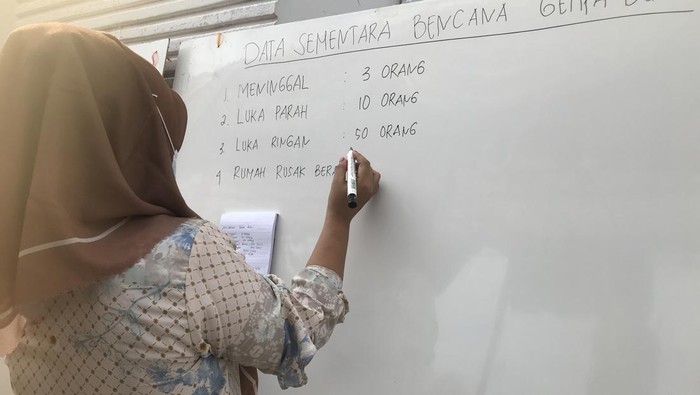 DATA SEMENTARA BENCANA GEMPA
1 MENINGGAL : 3 ORANG
2 LUKA PARAH : 10 ORANG
3 LUKA RINGAN : 50 ORANG
4 RUMAH RUSAK